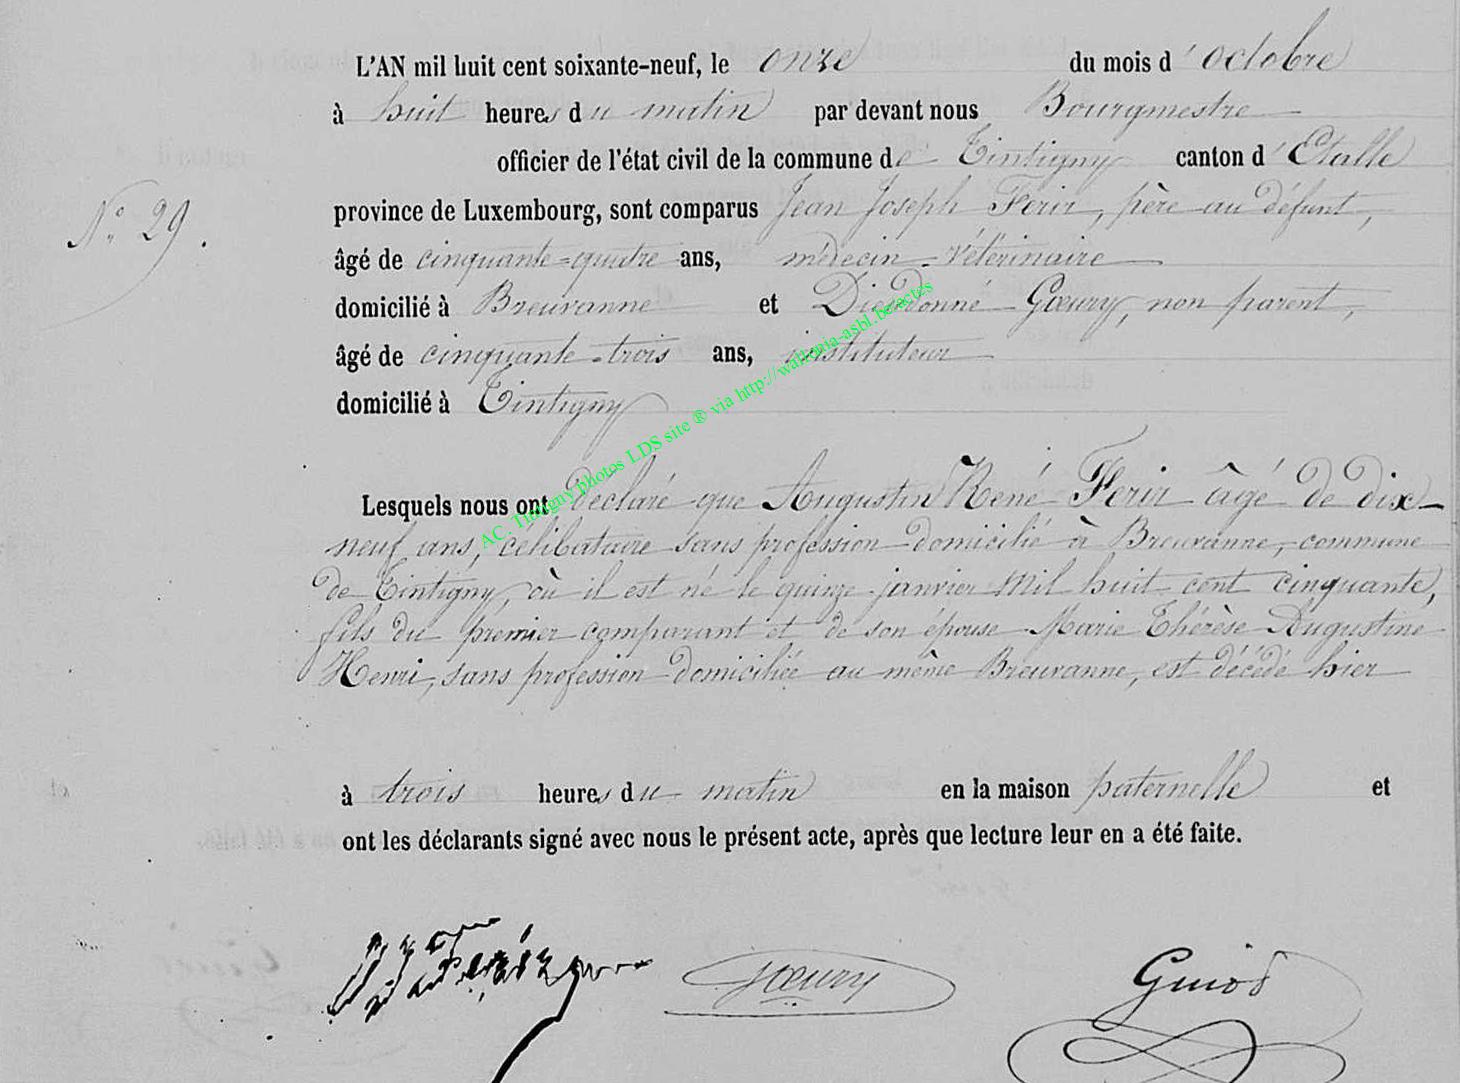 L'AN mil huit cent soixante-neuf, le onze du mois d'octobre
à huit heures du matin par devant nous Bourgmestre
officier de l'état civil de la commune de Tintigny canton d'Etalle
N° 29.
province de Luxembourg, sont comparus Jean Joseph Ferir, père au défunt,
âgé de cinquante-quatre ans, médecin-vétérinaire
domicilié à Breuvanne et Dieudonné Gœury, non parent,
âgé de cinquante-trois ans, instituteur
domicilié à Tintigny
AC. Tintigny photos LDS site ® via http://wallonia-asbl.be/actes
Lesquels nous ont déclaré que Augustin René Ferir âgé de dix-
neuf ans, célibataire sans profession domicilié à Breuvanne, commune
de Tintigny, où il est né le quinze janvier Mil huit cent cinquante,
fils du premier comparant et de son épouse Marie Thérèse Augustine
Henri, sans profession domiciliée au même Breuvanne, est décédé hier
à trois heures du matin en la maison paternelle et
ont les déclarants signé avec nous le présent acte, après que lecture leur en a été faite.
JJ Ferir Gœury Guiot